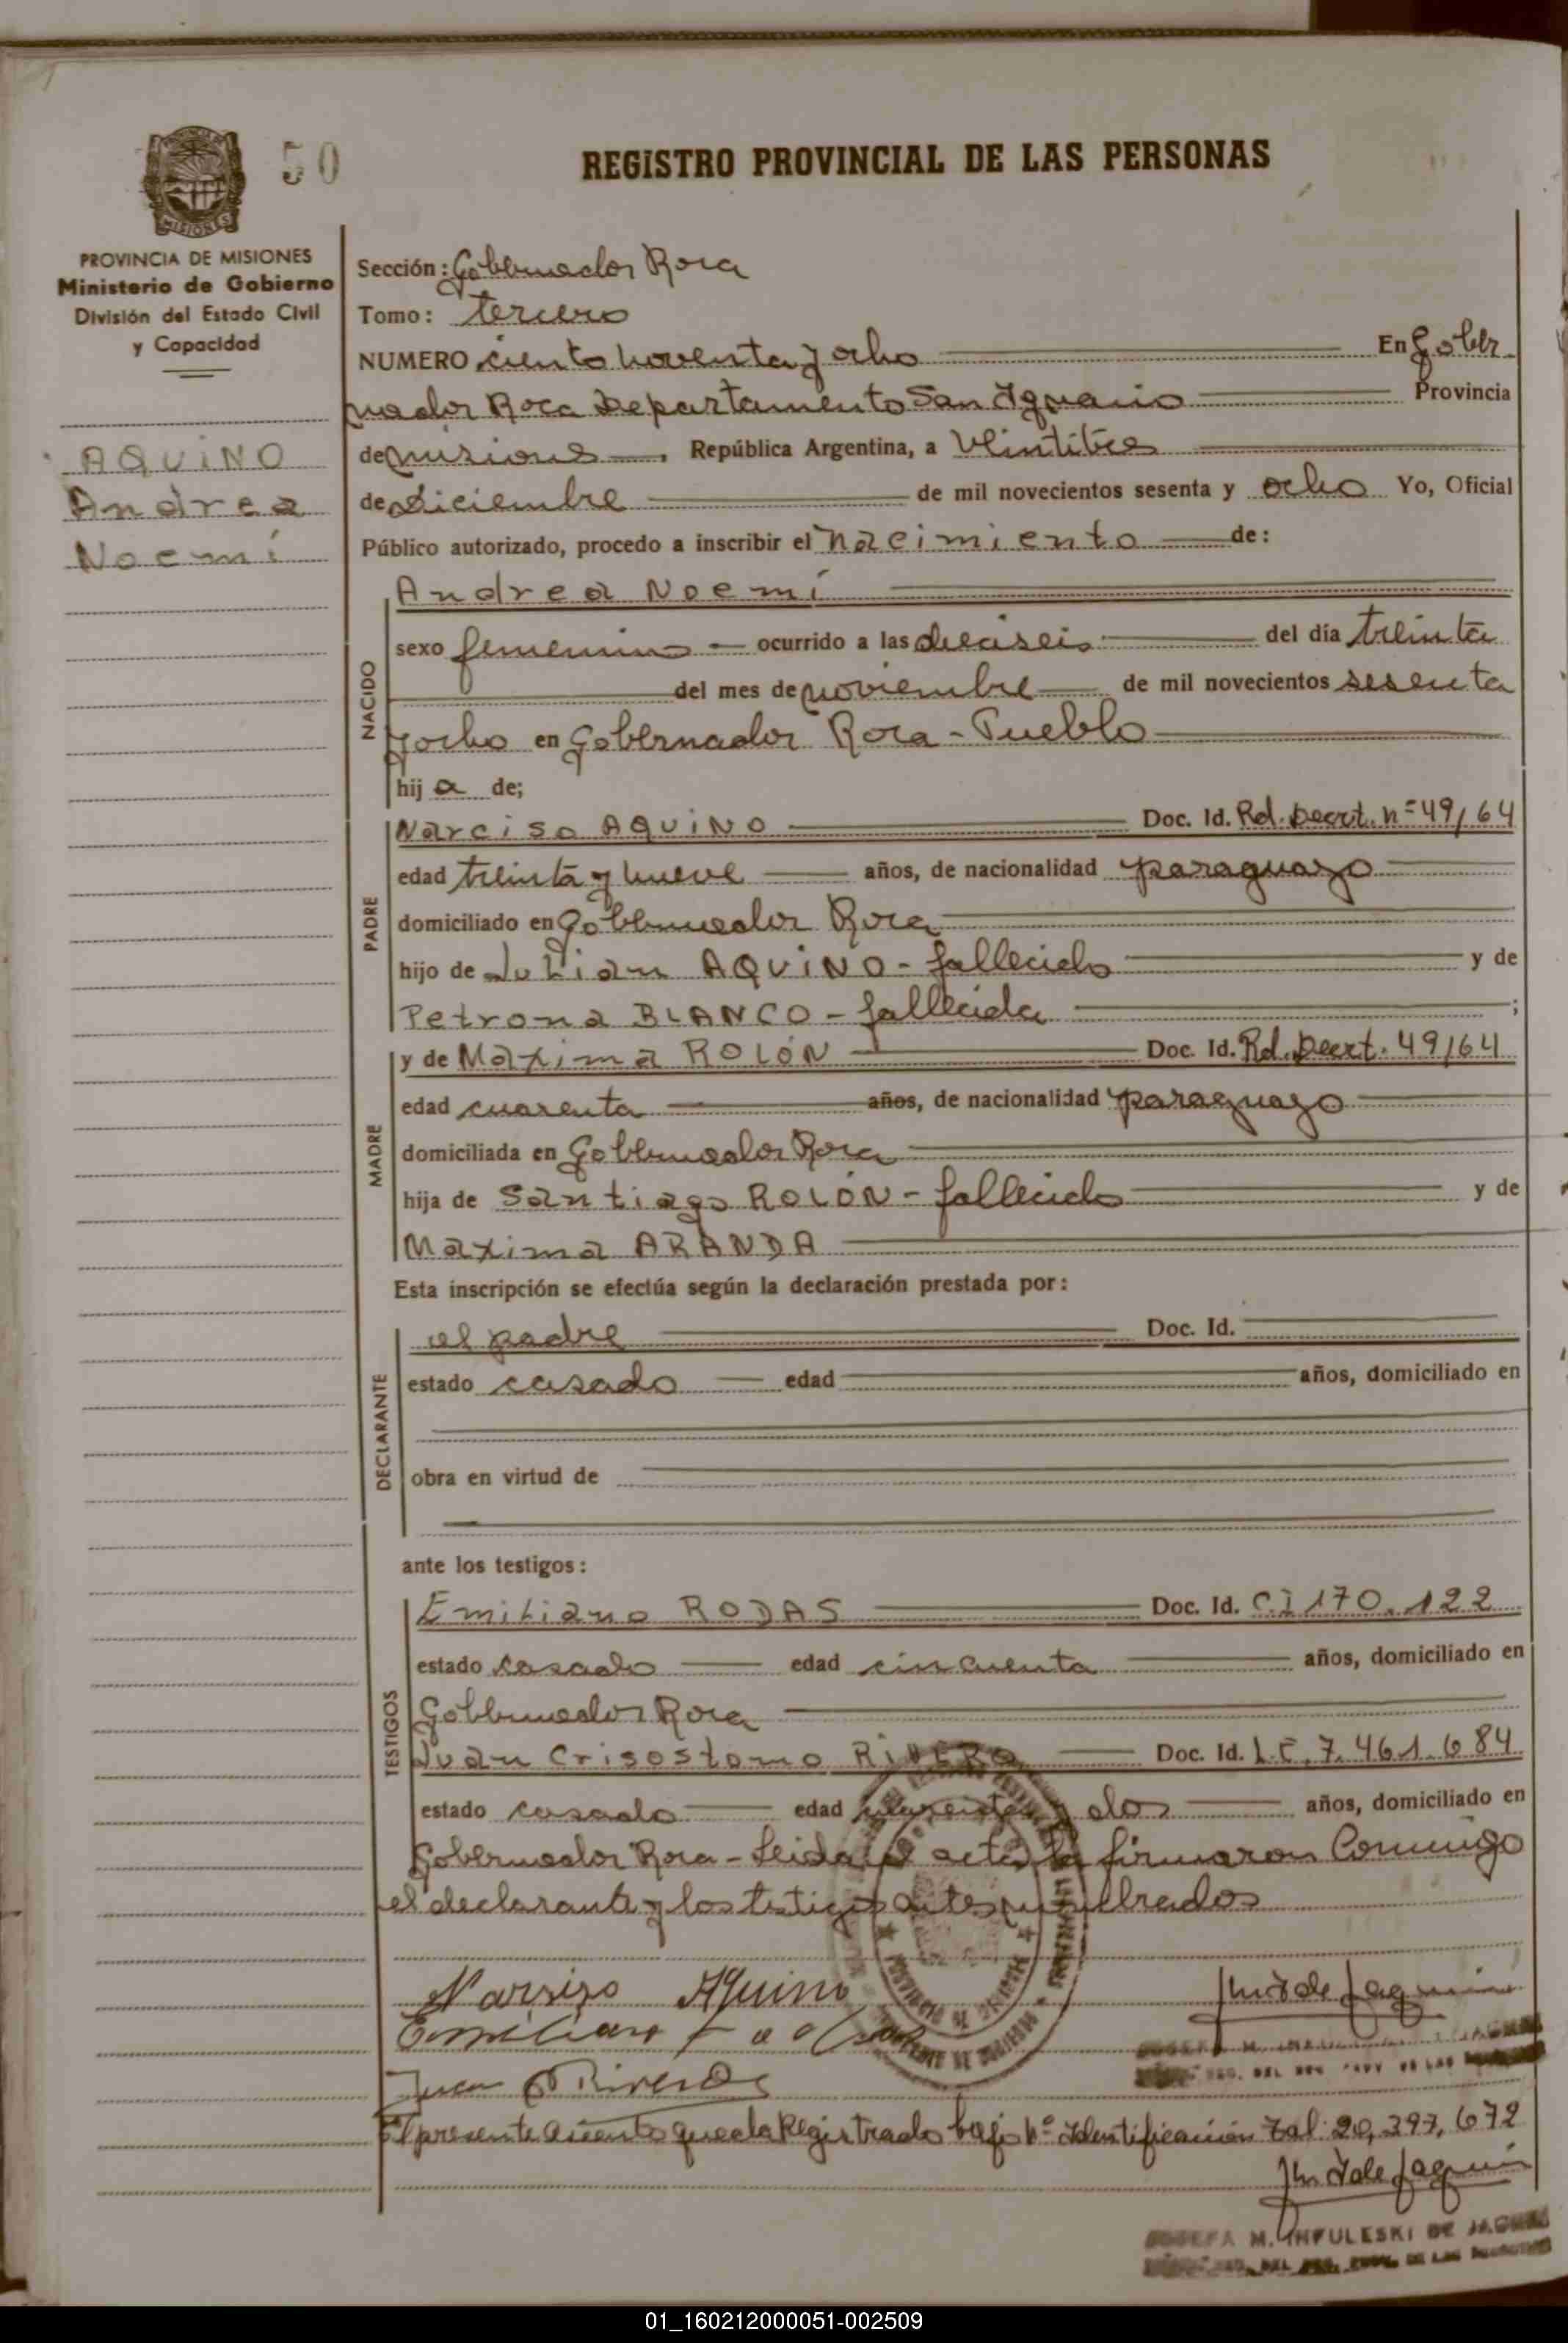 50
REGISTRO PROVINCIAL DE LAS PERSONAS
MISIONES
PROVINCIA DE MISIONES
Ministerio de Gobierno
División del Estado Civil
y Capacidad
AQUINO
Andrea
Noemí
Sección: Gobernador Roca
Tomo: tercero
NUMERO ciento noventa y ocho En Gober
nador Roca Departamento San Ignacio Provincia
de misiones, República Argentina, a veintitres
de diciembre de mil novecientos sesenta y ocho Yo, Oficial
Público autorizado, procedo a inscribir el nacimiento de:
NACIDO
Andrea Noemí
sexo femenino ocurrido a las dieciseis del día treinta
del mes de noviembre de mil novecientos sesenta
y ocho en Gobernador Roca - Pueblo
hij a de;
PADRE
Narciso AQUINO Doc. Id. Rd. Decrt. nº 49/64
edad treinta y nueve años, de nacionalidad paraguayo
domiciliado en Gobernador Roca
hijo de Julian AQUINO - fallecido y de
Petrona BLANCO - fallecida ;
MADRE
y de Maxima ROLÓN Doc. Id. Rd. Decrt. 49/64
edad cuarenta años, de nacionalidad paraguayo
domiciliada en Gobernador Roca
hija de Santiago ROLÓN - fallecido y de
Maxima ARANDA
Esta inscripción se efectúa según la declaración prestada por:
DECLARANTE
el padre Doc. Id.
estado casado edad años, domiciliado en
obra en virtud de
ante los testigos:
TESTIGOS
Emiliano RODAS Doc. Id. C.I 170.122
estado casado edad cincuenta años, domiciliado en
Gobernador Roca
Juan Crisostomo RIVERO Doc. Id. L.E. 7.461.684
estado casado edad cuarenta y dos años, domiciliado en
Gobernador Roca - Leida el acta la firmaron Conmigo
el declarante y los testigos antes nombrados
Narsiso Aquino
Emiliano
Juan Riveros
El presente asiento queda Registrado bajo Nº Identificación Fal. 20,397,672
JOSEFA M. INFULESKI DE JAGUIN
01_160212000051-002509